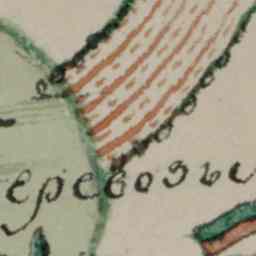 еревозы